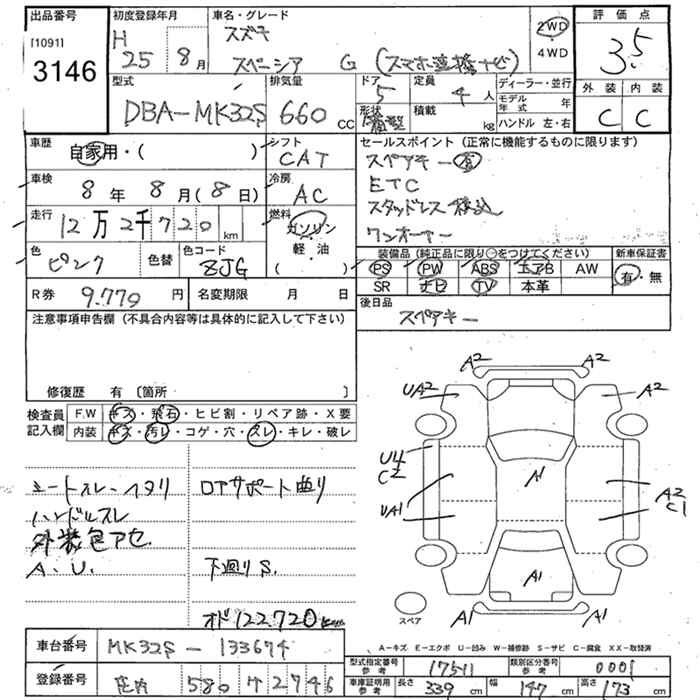 出品番号
[1091]
3146
初度登録年月
H 25 8月
車名・グレード
スズキ
スペーシア G (スマホ連携ナビ)
2WD
4WD
評価点
3.5
外装 内装
C C
型式
DBA-MK32S
排気量
660 cc
ドア
5
形状
定員
4人
積載
kg
ディーラー・並行
モデル年式 年
ハンドル 左・右
車歴
自家用・( )
シフト
CAT
車検
8年 8月(8日)
冷房
AC
走行
12万2千720km
燃料
ガソリン
軽・油
( )
色
ピンク
色替
色コード
ZJG
セールスポイント (正常に機能するものに限ります)
スペアキー
ETC
スタッドレス積込
ワンオーナー
装備品 (純正品に限り○をつけてください)
PS PW ABS エアB AW
SR ナビ TV 本革
新車保証書
有・無
R券 9.770円
名変期限 月 日
後日品
スペアキー
注意事項申告欄 (不具合内容等は具体的に記入して下さい)
修復歴 有 〔箇所 〕
検査員記入欄
F.W キズ・飛石・ヒビ割・リペア跡・X要
内装 キズ・汚レ・コゲ・穴・スレ・キレ・破レ
シートスレ・ヘタリ
ハンドルスレ
外装色アセ
A.U.
ロアサポート曲り
下廻りS.
オド122720km
A2 A2
UA2 A2
U4
C2
A1
UA1
A2
C1
A1
A1 A1
スペア
A-キズ E-エクボ U-凹み W-補修跡 S-サビ C-腐食 XX-取替済
車台番号
MK32S-133674
登録番号
庄内 580 サ 2746
型式指定番号 参考
17541
類別区分番号 参考
0001
車庫証明用 参考
長さ 339cm
幅 147cm
高さ 173cm